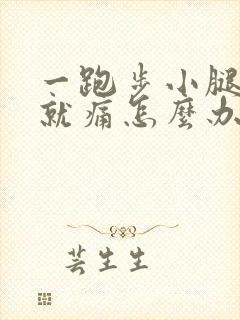 一跑步小腿
就痛怎麼办
芸生生